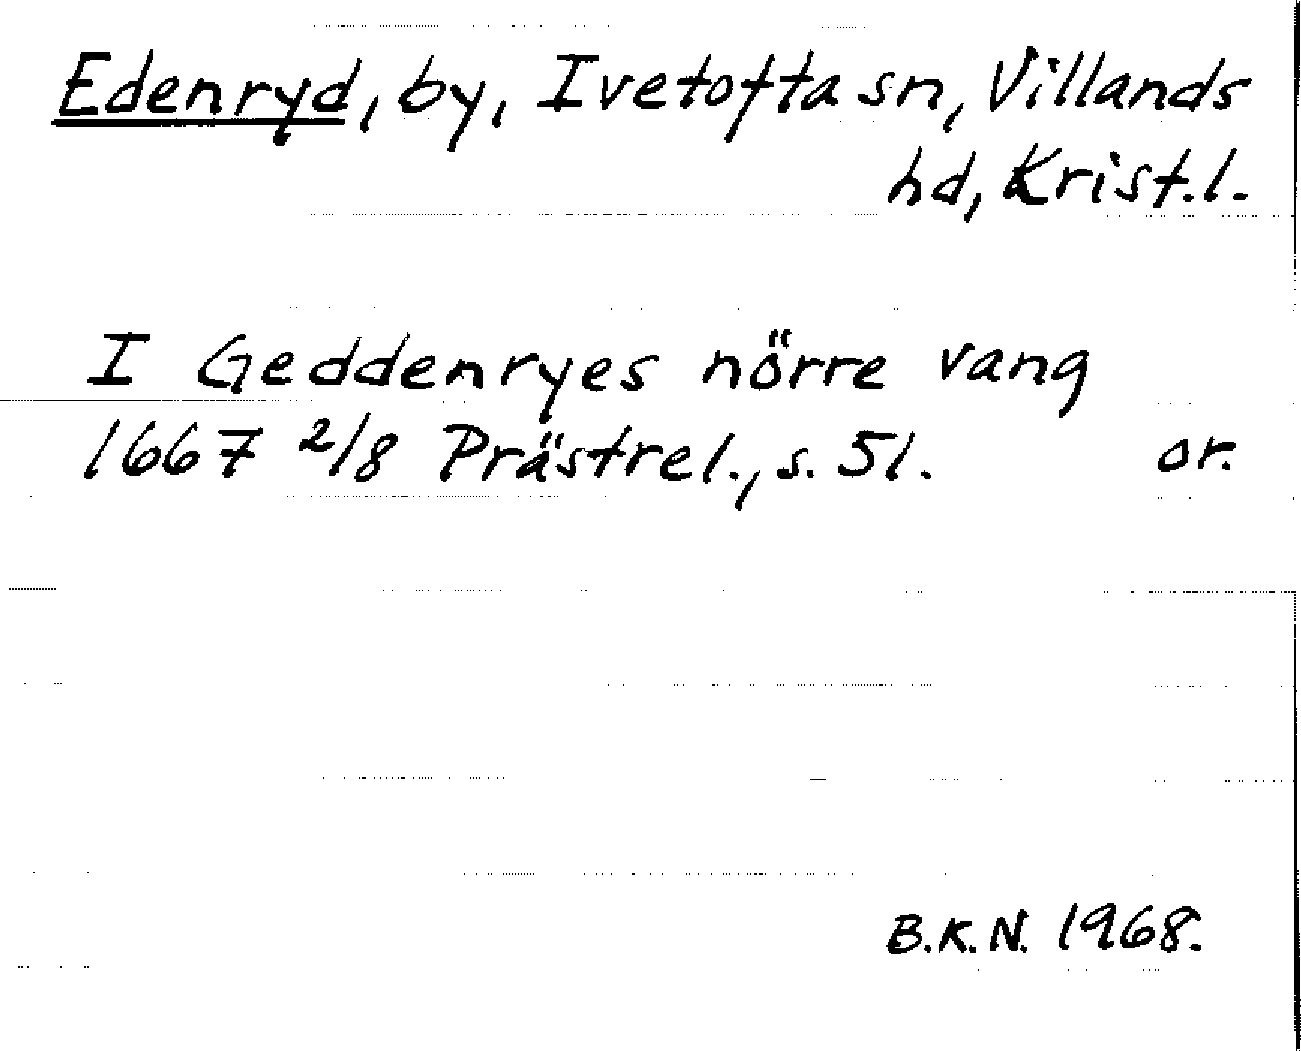 Edenryd, by, Ivetofta sn, Villands
hd, Krist.l.
I Geddenryes nörre vang
1667 2/8 Prästrel., s. 51. or.
B.K.N. 1968.